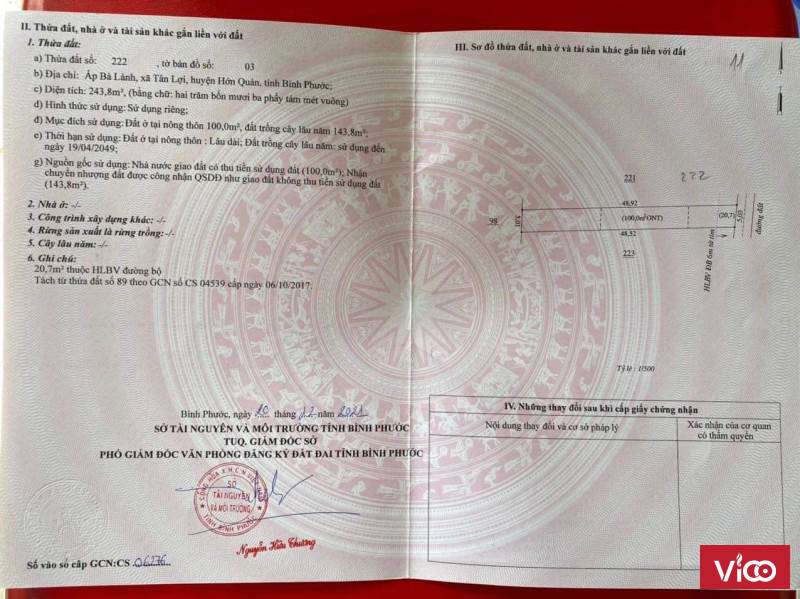 II. Thửa đất, nhà ở và tài sản khác gắn liền với đất
1. Thửa đất:
a) Thửa đất số: 222 , tờ bản đồ số: 03
b) Địa chỉ: Ấp Bà Lành, xã Tân Lợi, huyện Hớn Quản, tỉnh Bình Phước;
c) Diện tích: 243,8m², (bằng chữ: hai trăm bốn mươi ba phẩy tám mét vuông)
d) Hình thức sử dụng: Sử dụng riêng;
đ) Mục đích sử dụng: Đất ở tại nông thôn 100,0m², đất trồng cây lâu năm 143,8m²;
e) Thời hạn sử dụng: Đất ở tại nông thôn : Lâu dài; Đất trồng cây lâu năm: sử dụng đến
ngày 19/04/2049;
g) Nguồn gốc sử dụng: Nhà nước giao đất có thu tiền sử dụng đất (100,0m²); Nhận
chuyển nhượng đất được công nhận QSDĐ như giao đất không thu tiền sử dụng đất
(143,8m²).
2. Nhà ở: -/-
3. Công trình xây dựng khác: -/-
4. Rừng sản xuất là rừng trồng: -/-
5. Cây lâu năm: -/-
6. Ghi chú:
20,7m² thuộc HLBV đường bộ
Tách từ thửa đất số 89 theo GCN số CS 04539 cấp ngày 06/10/2017.
Bình Phước, ngày 20 tháng 12 năm 2021
SỞ TÀI NGUYÊN VÀ MÔI TRƯỜNG TỈNH BÌNH PHƯỚC
TUQ. GIÁM ĐỐC SỞ
PHÓ GIÁM ĐỐC VĂN PHÒNG ĐĂNG KÝ ĐẤT ĐAI TỈNH BÌNH PHƯỚC
SỞ
TÀI NGUYÊN
VÀ MÔI TRƯỜNG
TỈNH BÌNH PHƯỚC
Nguyễn Hữu Thương
Số vào sổ cấp GCN:CS 06276
III. Sơ đồ thửa đất, nhà ở và tài sản khác gắn liền với đất
11
221
222
48,92
98
5,01
(100,0m²ONT)
(20,7)
5,03
đường đất
48,52
223
HLBV ĐB 6m từ tim
Tỷ lệ : 1/500
IV. Những thay đổi sau khi cấp giấy chứng nhận
Nội dung thay đổi và cơ sở pháp lý
Xác nhận của cơ quan
có thẩm quyền
VICO